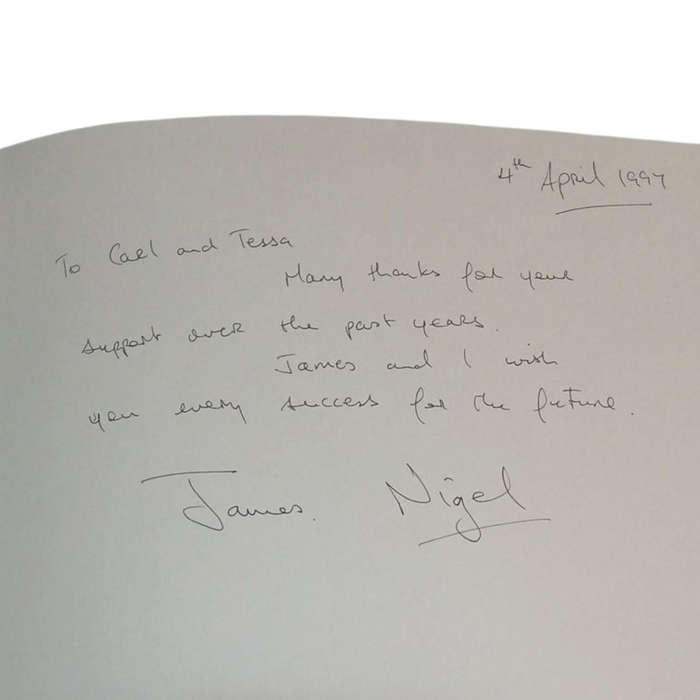 4th April 1997
To Carl and Tessa
Many thanks for your
support over the past years.
James and I wish
you every success for the future.
James. Nigel